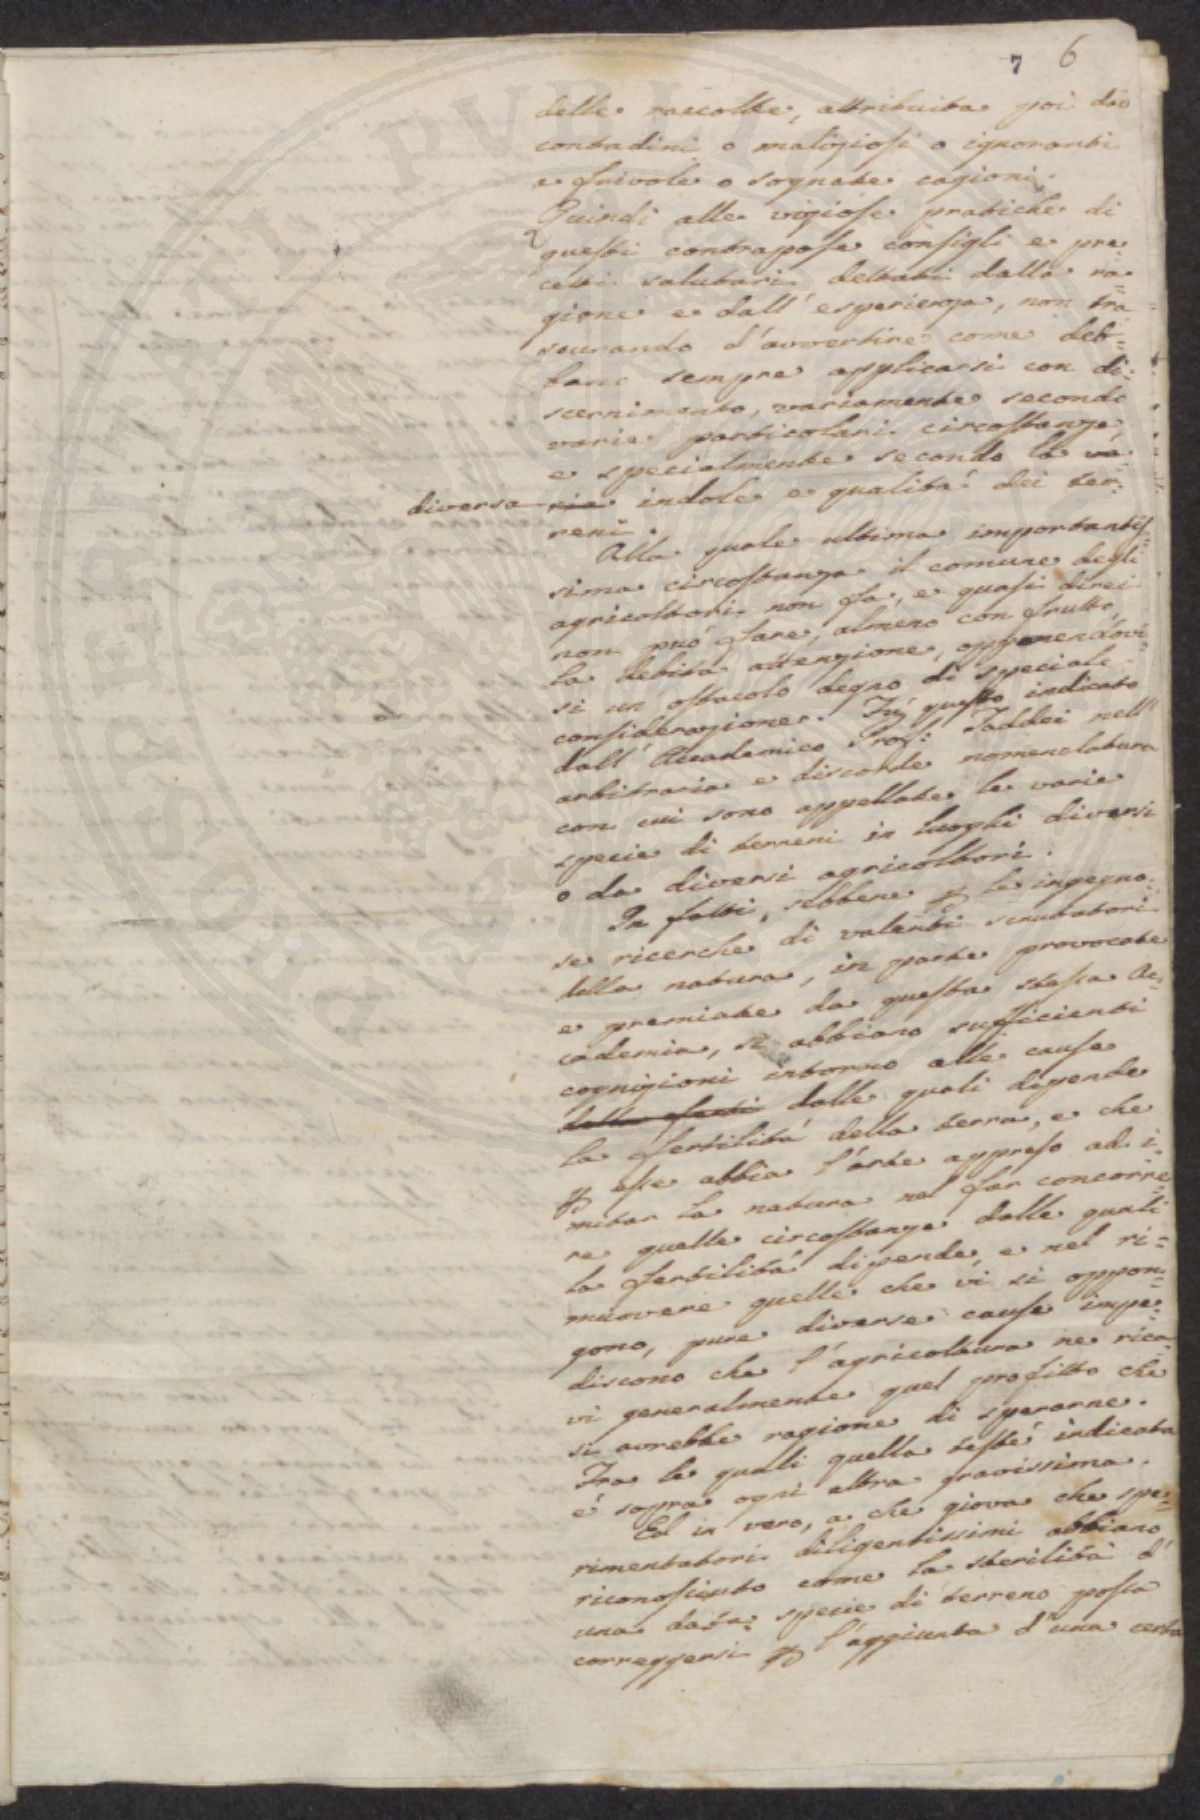 7 6
delle raccolte, attribuita poi dai
contadini o maliziosi o ignoranti
a frivole o sognate cagioni.
Quindi alle viziose pratiche di
questi contrapose consigli e pre=
cetti salutari dettati dalla ra=
gione e dall'esperienza, non tra=
scurando d'avvertire come deb=
bano sempre applicarsi con di=
scernimento, variamente secondo
varie particolari circostanze
e specialmente secondo la va=
diversa ria indole e qualità dei ter=
reni.
Alla quale ultima importantis=
sima circostanza il comune degli
agricoltori non fa, e quasi direi
non può fare, almeno con frutto,
la debita attenzione, opponendovi
si un ostacolo degno di speciale
considerazione. Fù questo indicato
dall'Accademico Prof: Taddei nell'
arbitraria e discorde nomenclatura
con cui sono appellate le varie
specie di terreni in luoghi diversi
o da diversi agricoltori.
In fatti, sebbene p le ingegno=
se ricerche di valenti scrutatori
della natura, in parte provocate
e premiate da questa stessa Ac=
cademia, si abbiano sufficienti
cognizioni intorno alle cause
dalle quali dipende
la fertilità della terra, e che
p esse abbia l'arte appreso ad i=
mitar la natura nel far concorre=
re quelle circostanze dalle quali
la fertilità dipende, e nel ri=
muovere quelle che vi si oppon=
gono, pure diverse cause impe=
discono che l'agricoltura ne rica=
vi generalmente quel profitto che
si avrebbe ragione di sperarne.
Fra le quali quella testè indicata
è sopra ogni altra gravissima.
Ed in vero, a che giova che spe=
rimentatori diligentissimi abbiano
riconosciuto come la sterilità d'
una data specie di terreno possa
correggersi p l'aggiunta d'una certa
PVBLICAE
PROSPERITATI